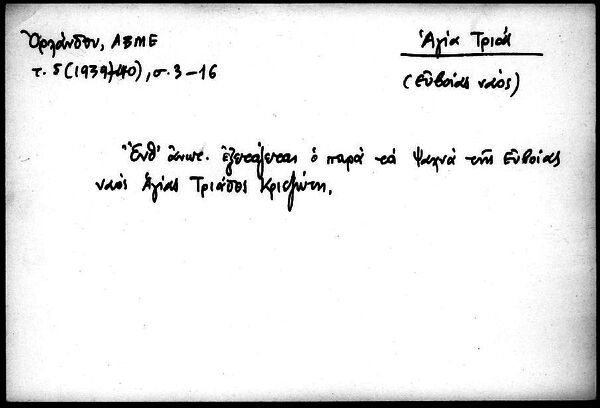 Ὀρλάνδου, ΑΒΜΕ
τ. δ (1939/40), σ. 3–16
Ἁγία Τριάς
(Εὐβοίας ναός)
Ἔνθ' ἀνωτ. ἐξετάζεται ὁ παρὰ τὰ Ψαχνὰ τῆς Εὐβοίας
ναὸς Ἁγίας Τριάδος Κριεζώτη.